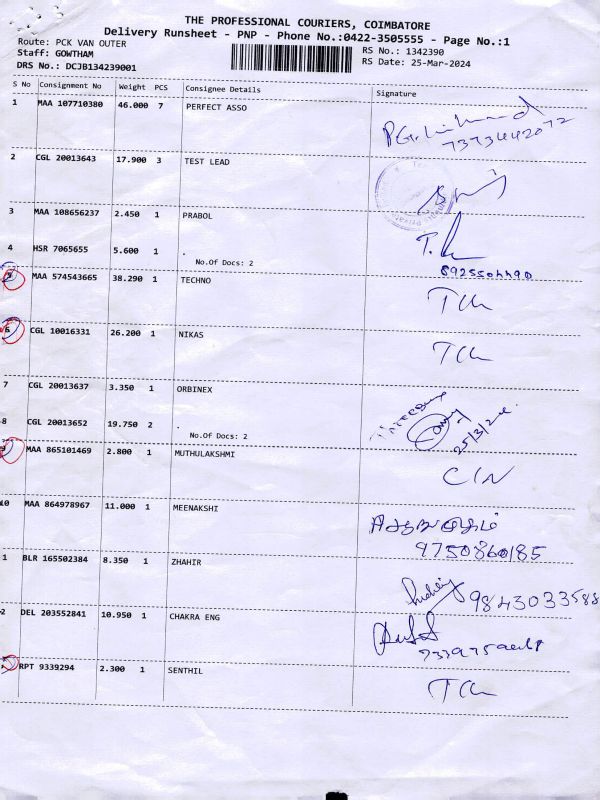 THE PROFESSIONAL COURIERS, COIMBATORE
Delivery Runsheet - PNP - Phone No.:0422-3505555 - Page No.:1
Route: PCK VAN OUTER
RS No.: 1342390
Staff: GOWTHAM
RS Date: 25-Mar-2024
DRS No.: DCJB134239001
S No Consignment No Weight PCS Consignee Details Signature
1 MAA 107710380 46.000 7 PERFECT ASSO
7373442072
2 CGL 20013643 17.900 3 TEST LEAD
3 MAA 108656237 2.450 1 PRABOL
4 HSR 7065655 5.600 1 .
No.Of Docs: 2
5 MAA 574543665 38.290 1 TECHNO
6 CGL 10016331 26.200 1 NIKAS
7 CGL 20013637 3.350 1 ORBINEX
8 CGL 20013652 19.750 2 .
No.Of Docs: 2
25/3/24
MAA 865101469 2.800 1 MUTHULAKSHMI
10 MAA 864978967 11.000 1 MEENAKSHI
9750860185
1 BLR 165502384 8.350 1 ZHAHIR
9843033588
2 DEL 203552841 10.950 1 CHAKRA ENG
RPT 9339294 2.300 1 SENTHIL